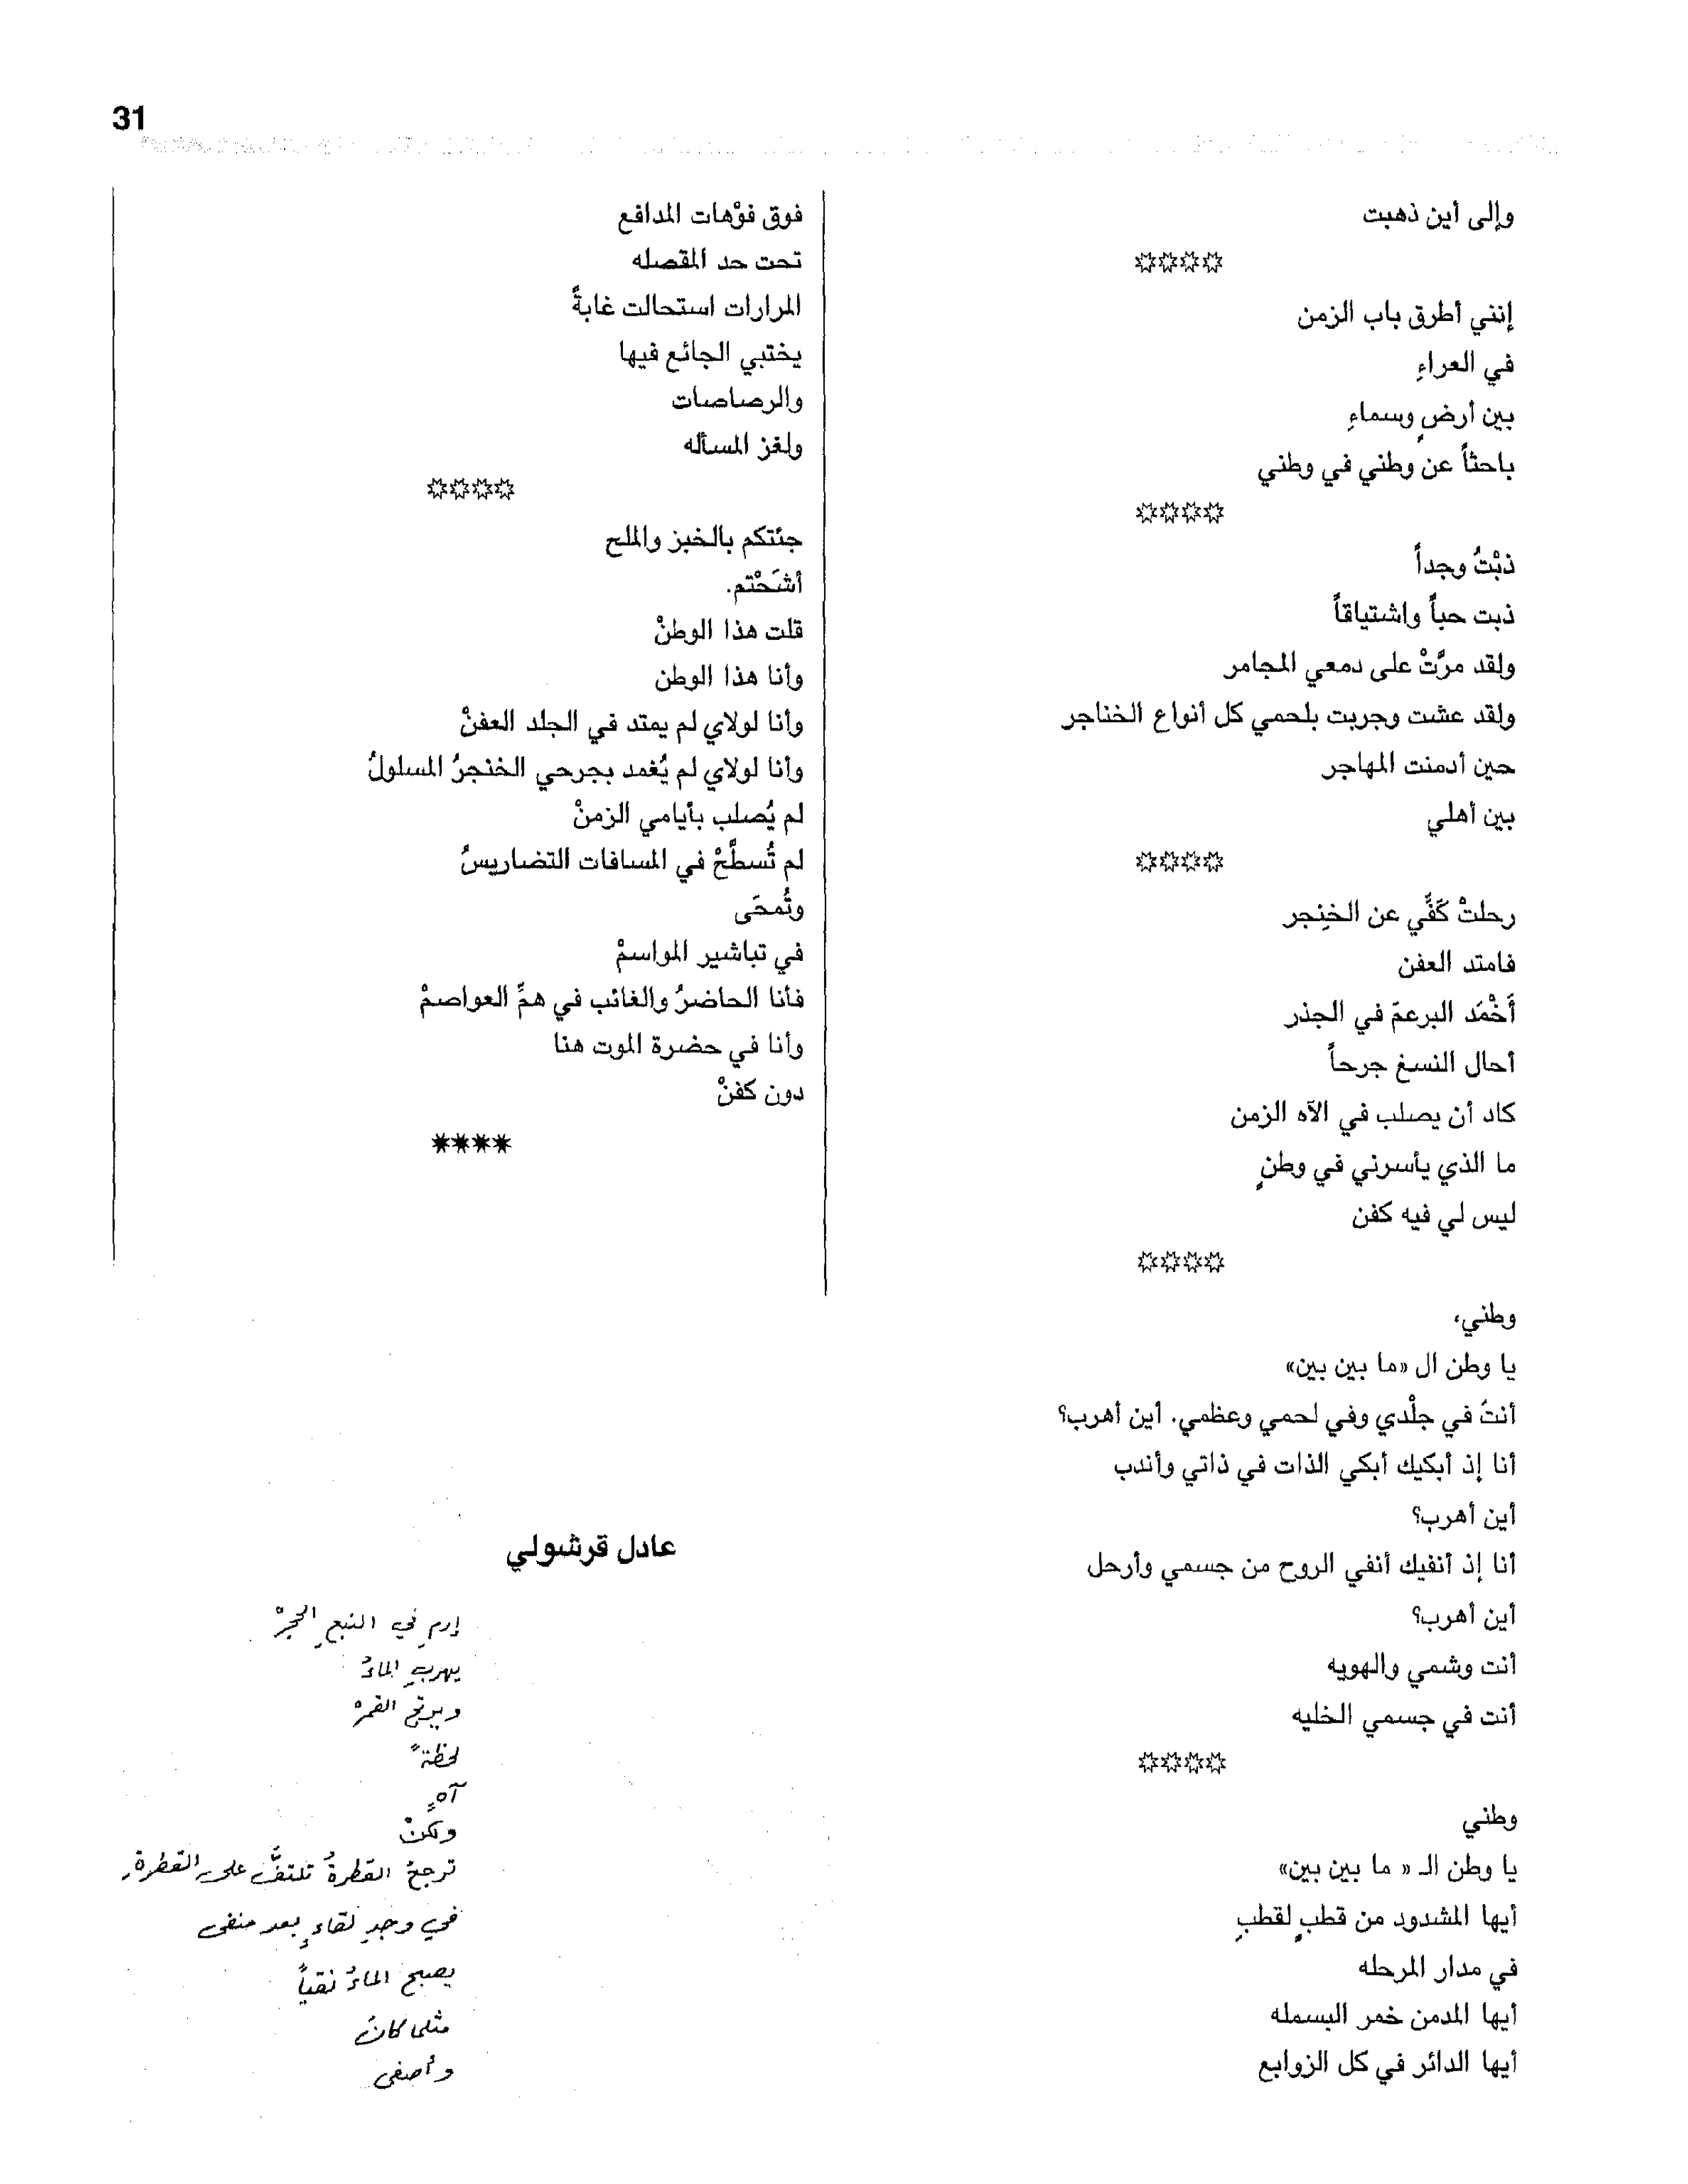 31
وإلى أين ذهبت
☼☼☼☼
إنني أطرق باب الزمن
في العراءِ
بين أرضٍ وسماءِ
باحثاً عن وطني في وطني
☼☼☼☼
ذبْتُ وجداً
ذبت حباً واشتياقاً
ولقد مرَّتْ على دمعي المجامر
ولقد عشت وجربت بلحمي كل أنواع الخناجر
حين أدمنت المهاجر
بين أهلي
☼☼☼☼
رحلتْ كَفِّي عن الخنِجر
فامتد العفن
أَخْمَد البرعمَ في الجذر
أحال النسغ جرحاً
كاد أن يصلب في الآه الزمن
ما الذي يأسرني في وطنٍ
ليس لي فيه كفن
☼☼☼☼
وطني،
يا وطن ال «ما بين بين»
أنتَ في جلْدي وفي لحمي وعظمي. أين أهرب؟
أنا إذ أبكيك أبكي الذات في ذاتي وأندب
أين أهرب؟
أنا إذ أنفيك أنفي الروح من جسمي وأرحل
أين أهرب؟
أنت وشمي والهويه
أنت في جسمي الخليه
☼☼☼☼
وطني
يا وطن الـ « ما بين بين»
أيها المشدود من قطبٍ لقطبِ
في مدار المرحله
أيها المدمن خمر البسمله
أيها الدائر في كل الزوابع
فوق فوْهات المدافع
تحت حد المقصله
المرارات استحالت غابةً
يختبي الجائع فيها
والرصاصات
ولغز المسأله
☼☼☼☼
جئتكم بالخبز والملح
أشَحْتم.
قلت هذا الوطنْ
وأنا هذا الوطن
وأنا لولاي لم يمتد في الجلد العفنْ
وأنا لولاي لم يُغمد بجرحي الخنجرُ المسلولُ
لم يُصلب بأيامي الزمنْ
لم تُسطَّحْ في المسافات التضاريسُ
وتُمحَى
في تباشير المواسمْ
فأنا الحاضرُ والغائب في همِّ العواصمْ
وأنا في حضرة الموت هنا
دون كفنْ
✷✷✷✷
عادل قرشولي
إرمِ في النبعِ الحجرْ
يهربِ الماءُ
ويرتج القمرْ
لحظةً
آهٍ
ولكنْ
ترجعُ القطرةُ تلتفُّ على القطرةِ
في وجدِ لقاءٍ بعد منفى
يصبح الماءُ نقياً
مثلما كانَ
وأصفى